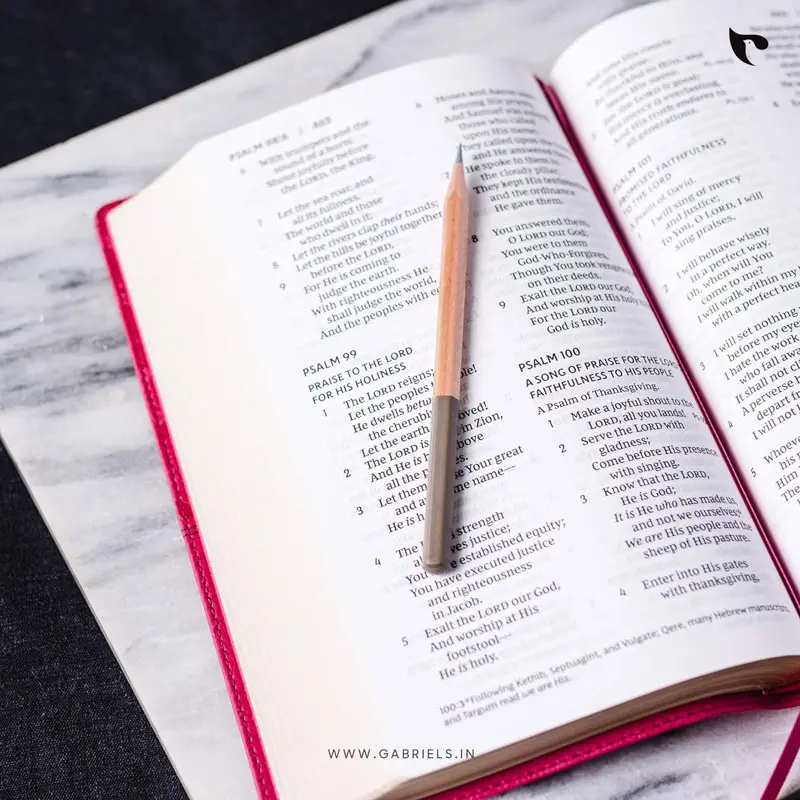 PSALM 98:5 | 483
6 With trumpets and the
sound of a horn;
Shout joyfully before
the LORD, the King.
7 Let the sea roar, and
all its fullness,
The world and those
who dwell in it;
Let the rivers clap their hands;
8 Let the hills be joyful together
before the LORD,
9 For He is coming to
judge the earth.
With righteousness He
shall judge the world,
And the peoples with
PSALM 99
PRAISE TO THE LORD
FOR HIS HOLINESS
1 The LORD reigns;
Let the peoples
He dwells
the cherubim oved!
Let the earth
2 The LORD is in Zion,
And He is above
all the
3 Let them se Your great
me name—
He is
4 The strength
ves justice;
You e established equity;
You have executed justice
and righteousness
in Jacob.
5 Exalt the LORD our God,
And worship at His
footstool—
He is holy.
6 Moses and Aaron were
among His priests,
And Samuel was
those who called
upon His name;
They called upon the
and He answered
7 He spoke to them in
the cloudy pillar;
They kept His testimonies
and the ordinance
He gave them.
8 You answered them,
O LORD our God;
You were to them
God-Who-Forgives,
Though You took vengeance
on their deeds.
9 Exalt the LORD our God,
And worship at His holy
For the LORD our
God is holy.
PSALM 100
A SONG OF PRAISE FOR THE LORD'S
FAITHFULNESS TO HIS PEOPLE
A Psalm of Thanksgiving.
1 Make a joyful shout to the
LORD, all you lands!
2 Serve the LORD with
gladness;
Come before His presence
with singing.
3 Know that the LORD,
He is God;
It is He who has made us,
and not we ourselves;
We are His people and the
sheep of His pasture.
4 Enter into His gates
with thanksgiving,
100:3 Following Kethib, Septuagint, and Vulgate; Qere, many Hebrew manuscripts,
and Targum read we are His.
And into His courts
with praise.
Be thankful to Him, and
bless His name.
5 For the LORD is good;
His mercy is everlasting,
And His truth endures to
all generations.
PSALM 101
PROMISED FAITHFULNESS
TO THE LORD
A Psalm of David.
1 I will sing of mercy
and justice;
To You, O LORD, I will
sing praises.
2 I will behave wisely
in a perfect way.
Oh, when will You
come to me?
I will walk within my
with a perfect heart.
3 I will set nothing
before my eyes;
I hate the work
who fall away;
It shall not
4 A perverse
depart
I will not
5 Whoever
his
Him
The
WWW.GABRIELS.IN